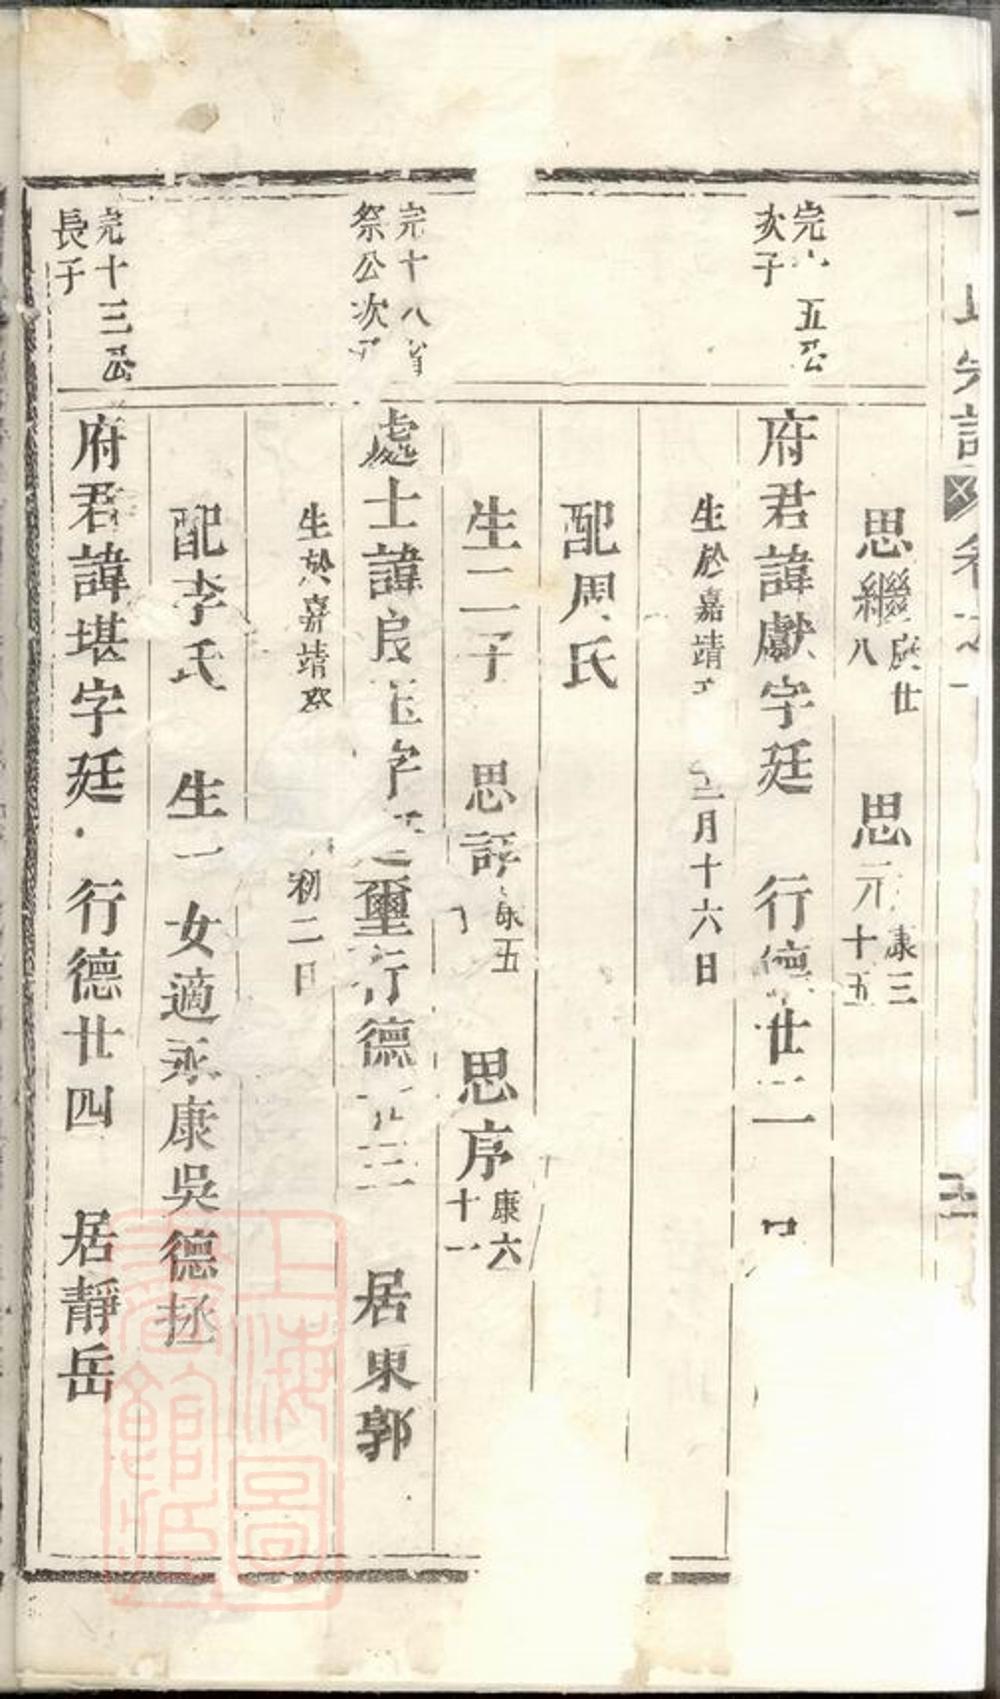 思繼康廿八 思元康三十五
完 五公次子
府君諱獻字廷 行德廿二
生於嘉靖 二月十六日
配周氏
生二子 思諄 五 思序康六十一
完十八省祭公次子
處士諱良 字 爾行德 三 居東郭
生於嘉靖癸 初二日
配李氏 生一女適永康吳德拯
完十三公長子
府君諱堪字廷 行德廿四 居靜岳
上海圖書館藏